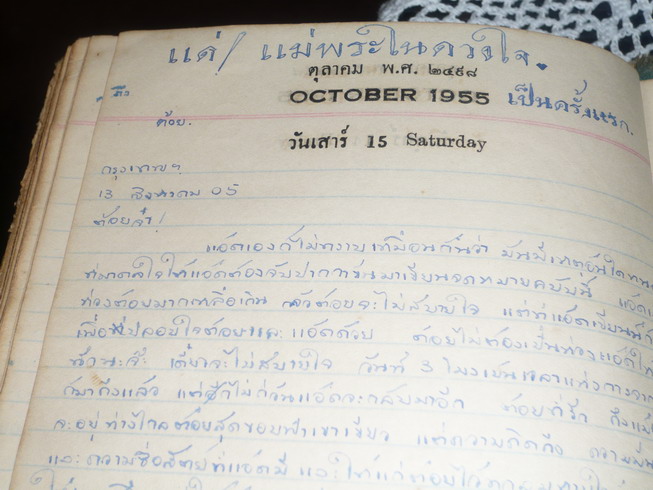 แด่/ แม่พระในดวงใจ.
ตุลาคม พ.ศ. ๒๔๙๘
OCTOBER 1955 เป็นครั้งแรก.
ถึง
ต้อย.
วันเสาร์ 15 Saturday
กรุงเทพฯ
13 สิงหาคม 05
ต้อยจ๋า!
แอ๊ดเองก็ไม่ทราบเหมือนกันว่า มันมีเหตุอันใด
ที่มาดลใจให้แอ๊ดต้องจับปากกาขึ้นมาเขียนจดหมายฉบับนี้
ห่วงต้อยมากเหลือเกิน กลัวต้อยจะไม่สบายใจ แต่ที่แอ๊ดเขียนนี้ก็
เพื่อที่ปลอบใจต้อยและแอ๊ดด้วย ต้อยไม่ต้องเป็นห่วงแอ๊ด
นักนะจ๊ะ เดี๋ยวจะไม่สบายใจ วันที่ 3 โมงเย็นเวลาแห่งการจาก
ก็มาถึงแล้ว แต่อีกไม่กี่วันแอ๊ดจะกลับมาอีก ต้อยที่รัก ถึงแม้
จะอยู่ห่างไกลต้อยสุดขอบฟ้าเขาเขียว แต่ความคิดถึง
และความซื่อสัตย์ที่แอ๊ดมี และให้แก่ต้อยไว้